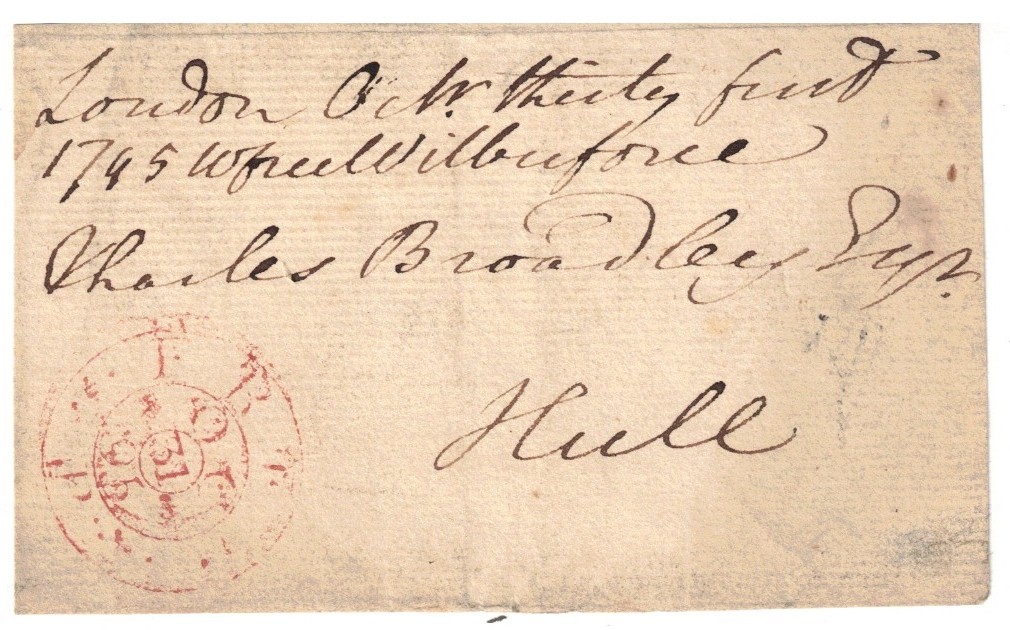 London Octr. thirty first
1795 W free Wilberforce
Charles Broadley Esqr.
Hull
FR
31